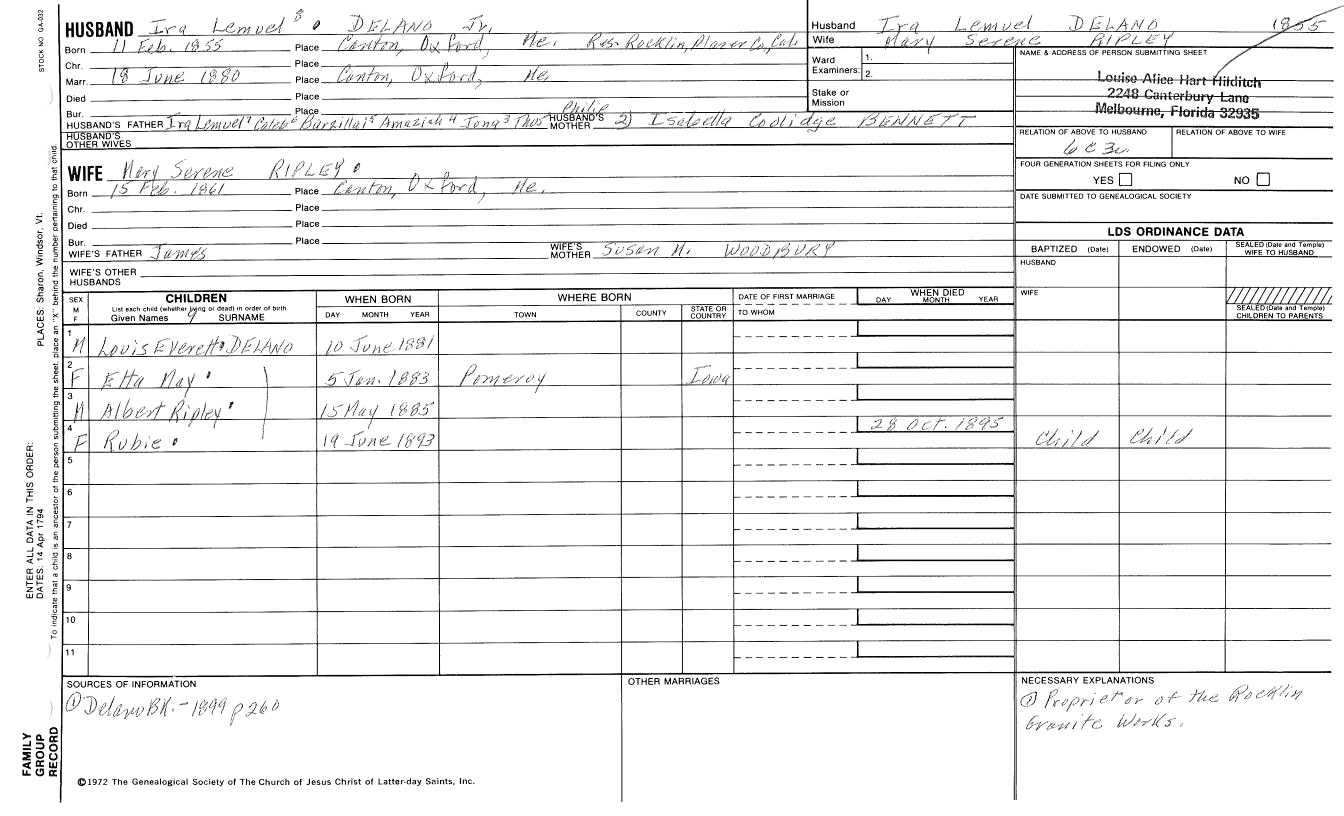 STOCK NO. GA-032
HUSBAND Ira Lemuel 8 DELANO Jr.
Born 11 Feb. 1855 Place Canton, Oxford, Me. Res. Rocklin, Placer Co, Cal.
Chr. Place
Marr. 18 June 1880 Place Canton, Oxford, Me
Died Place
Bur. Place
HUSBAND'S FATHER Ira Lemuel 7 Caleb 6 Barzillai 5 Amaziah 4 Jona 3 Thos Philip HUSBAND'S MOTHER 2) Isabella Coolidge BENNETT
HUSBAND'S OTHER WIVES
Husband Ira Lemuel DELANO 1855
Wife Mary Serene RIPLEY
Ward 1.
Examiners: 2.
Stake or Mission
NAME & ADDRESS OF PERSON SUBMITTING SHEET
Louise Alice Hart Hilditch
2248 Canterbury Lane
Melbourne, Florida 32935
RELATION OF ABOVE TO HUSBAND RELATION OF ABOVE TO WIFE
6 C 3r
FOUR GENERATION SHEETS FOR FILING ONLY
YES NO
DATE SUBMITTED TO GENEALOGICAL SOCIETY
WIFE Mary Serene RIPLEY
Born 15 Feb. 1861 Place Canton, Oxford, Me.
Chr. Place
Died Place
Bur. Place
WIFE'S FATHER James WIFE'S MOTHER Susan H. WOODBURY
WIFE'S OTHER HUSBANDS
LDS ORDINANCE DATA
BAPTIZED (Date) ENDOWED (Date) SEALED (Date and Temple) WIFE TO HUSBAND
HUSBAND
WIFE
SEALED (Date and Temple) CHILDREN TO PARENTS
SEX M F CHILDREN List each child (whether living or dead) in order of birth Given Names 9 SURNAME WHEN BORN DAY MONTH YEAR WHERE BORN TOWN COUNTY STATE OR COUNTRY DATE OF FIRST MARRIAGE TO WHOM WHEN DIED DAY MONTH YEAR
1 M Louis Everett DELANO 10 June 1881
2 F Etta May 5 Jan. 1883 Pomeroy Iowa
3 M Albert Ripley 15 May 1885
4 F Rubie 19 June 1893 28 Oct. 1895 Child Child
5
6
7
8
9
10
11
SOURCES OF INFORMATION
① Delano BK. - 1899 p 260
OTHER MARRIAGES
NECESSARY EXPLANATIONS
① Proprietor of the Rocklin
Granite Works.
©1972 The Genealogical Society of The Church of Jesus Christ of Latter-day Saints, Inc.
FAMILY GROUP RECORD
ENTER ALL DATA IN THIS ORDER:
DATES: 14 Apr 1794
PLACES: Sharon, Windsor, Vt.
To indicate that a child is an ancestor of the person submitting the sheet, place an "X" behind the number pertaining to that child.